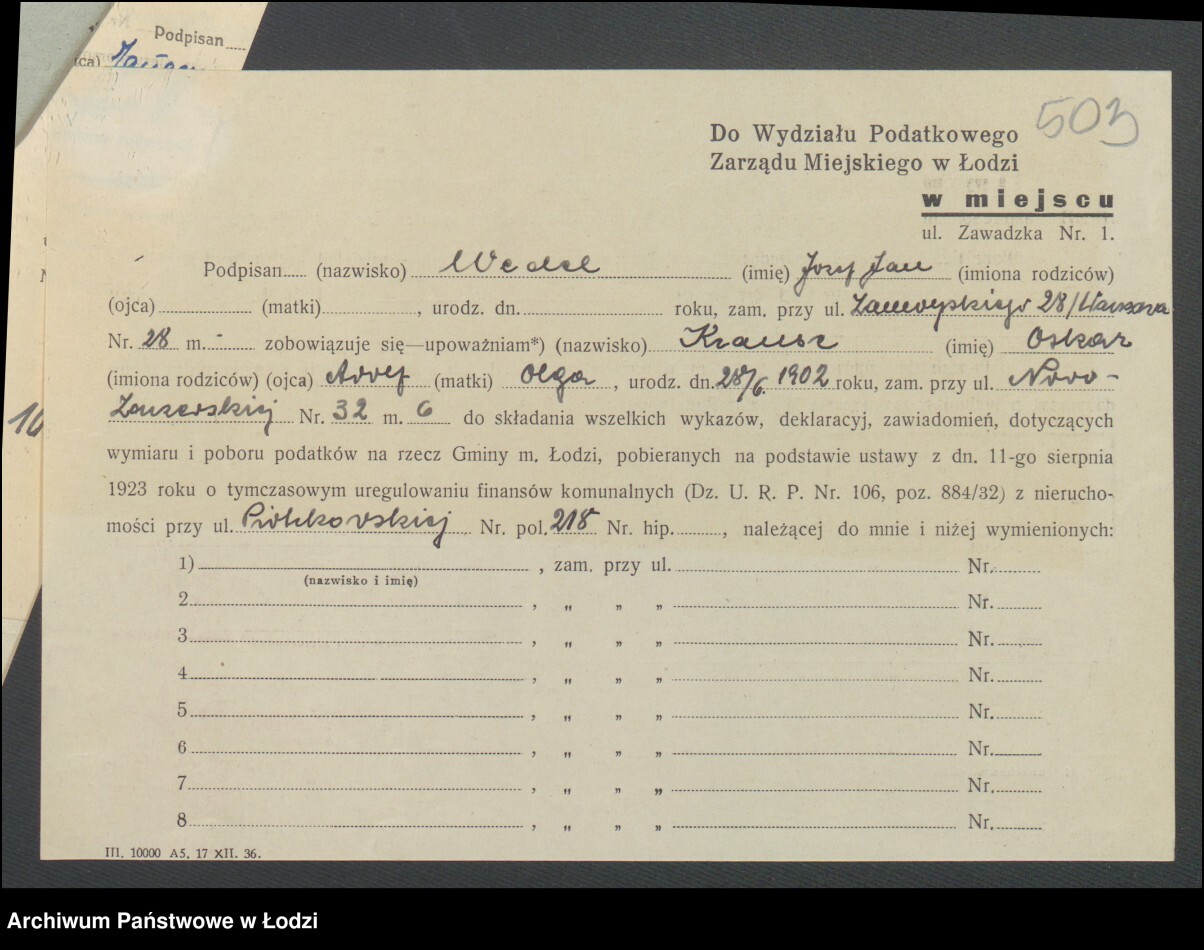 Podpisan
(ca)
503
Do Wydziału Podatkowego
Zarządu Miejskiego w Łodzi
w miejscu
ul. Zawadzka Nr. 1.
Podpisan (nazwisko) Wedel (imię) Józef Jan (imiona rodziców)
(ojca) (matki) , urodz. dn. roku, zam. przy ul. Zamoyskiego 28/Warszawa
Nr. 28 m. - zobowiązuje się—upoważniam*) (nazwisko) Krausz (imię) Oskar
(imiona rodziców) (ojca) Adolf (matki) Olga , urodz. dn. 28/6 1902 roku, zam. przy ul. Nowo-
Zarzewskiej Nr. 32 m. 6 do składania wszelkich wykazów, deklaracyj, zawiadomień, dotyczących
wymiaru i poboru podatków na rzecz Gminy m. Łodzi, pobieranych na podstawie ustawy z dn. 11-go sierpnia
1923 roku o tymczasowym uregulowaniu finansów komunalnych (Dz. U. R. P. Nr. 106, poz. 884/32) z nierucho-
mości przy ul. Piotrkowskiej Nr. pol. 218 Nr. hip. , należącej do mnie i niżej wymienionych:
1) , zam. przy ul. Nr.
(nazwisko i imię)
2 , „ „ „ Nr.
3 , „ „ „ Nr.
4 , „ „ „ Nr.
5 , „ „ „ Nr.
6 , „ „ „ Nr.
7 , „ „ „ Nr.
8 , „ „ „ Nr.
III. 10000 A5. 17 XII. 36.
Archiwum Państwowe w Łodzi